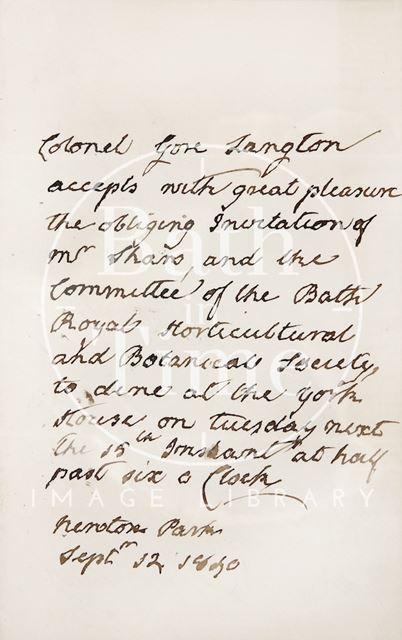 Colonel Gore Langton
accepts with great pleasure
the obliging Invitation of
Mr and the
Committee of the Bath
Royal Horticultural
and Botanical Society,
to dine at the York
House on Tuesday next
the 15th Instant at half
past six o Clock
Newton Park
Septr 12, 1840
Bath
in
Time
IMAGE LIBRARY